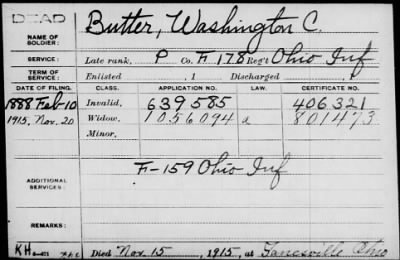 DEAD
NAME OF SOLDIER: Butter, Washington C.
SERVICE: Late rank, P Co. F 178 Reg't Ohio Inf
TERM OF SERVICE: Enlisted , 1 Discharged , 1
DATE OF FILING. CLASS. APPLICATION NO. LAW. CERTIFICATE NO.
1888 Feb-10 Invalid, 639585 406321
1915, Nov. 20 Widow, 1056094 801473
Minor,
ADDITIONAL SERVICES: F-159 Ohio Inf
REMARKS:
KH
Died Nov. 15, 1915, at Zanesville Ohio